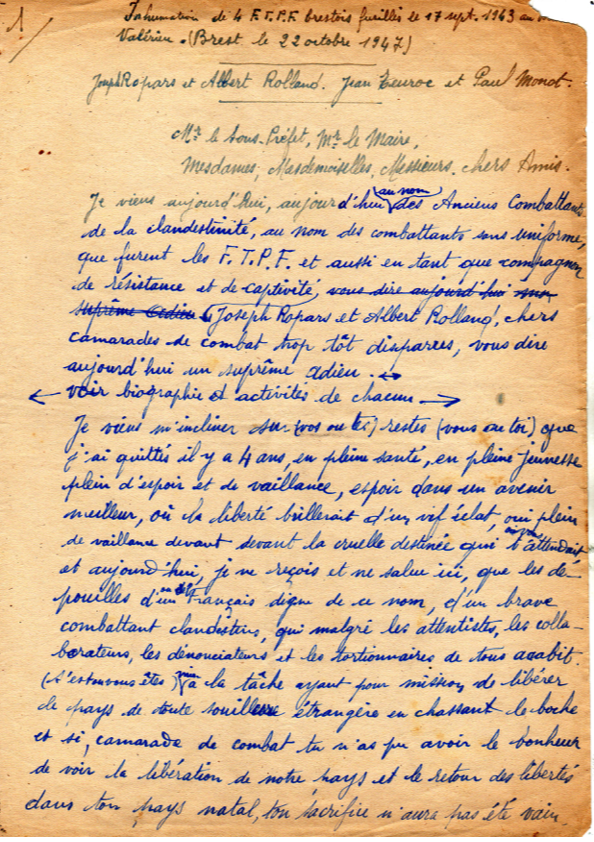 1
Inhumation de 4 F.T.P.F. brestois fusillés le 17 sept. 1943 au
Valérien. (Brest le 22 octobre 1947)
Joseph Ropars et Albert Rolland. Jean Teuroc et Paul Monot.
Mr le Sous-Préfet, Mr le Maire,
Mesdames, Mesdemoiselles, Messieurs, chers Amis.
Je viens aujourd'hui, aujourd'hui au nom des Anciens Combattants
de la clandestinité, au nom des combattants sans uniforme,
que furent les F.T.P.F. et aussi en tant que compagnon
de résistance et de captivité, vous dire aujourd'hui un
suprême adieu Joseph Ropars et Albert Rolland, chers
camarades de combat trop tôt disparus, vous dire
aujourd'hui un suprême adieu.
voir biographie et activités de chacun
Je viens m'incliner sur (vos ou tes) restes (vous ou toi) que
j'ai quittés il y a 4 ans, en pleine santé, en pleine jeunesse
plein d'espoir et de vaillance, espoir dans un avenir
meilleur, où la liberté brillerait d'un vif éclat, oui plein
de vaillance devant devant la cruelle destinée qui t'attendait
et aujourd'hui, je ne reçois et ne salue ici, que les dé-
pouilles d'un Français digne de ce nom, d'un brave
combattant clandestin, qui malgré les attentistes, les colla-
borateurs, les dénonciateurs et les tortionnaires de tous acabit.
(t'es ou vous êtes) mis à la tâche ayant pour mission de libérer
le pays de toute souillure étrangère en chassant le boche
et si, camarade de combat tu n'as pu avoir le bonheur
de voir la libération de notre pays et le retour des libertés
dans ton pays natal, ton sacrifice n'aura pas été vain.